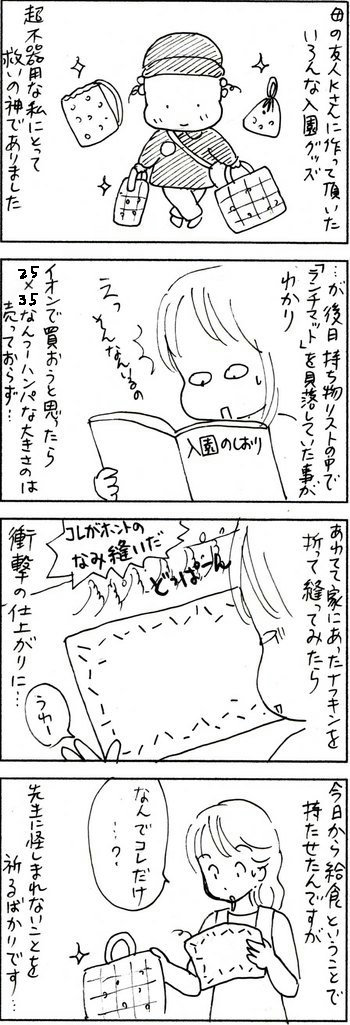 母の友人Kさんに作って頂いた
いろんな入園グッズ
超不器用な私にとって
救いの神でありました
…が後日持ち物リストの中で
「ランチマット」を見落していた事が
わかり
えっ
そんなんいるの
入園のしおり
イオンで買おうと思ったら
25×35なんつーハンパな大きさのは
売っておらず…
あわてて家にあったナフキンを
折って縫ってみたら
コレがホントの
なみ縫いだ
どっぱーん
衝撃の仕上がりに…
うわー
今日から給食ということで
持たせたんですが
なんでコレだけ
…?
先生に怪しまれないことを
祈るばかりです…